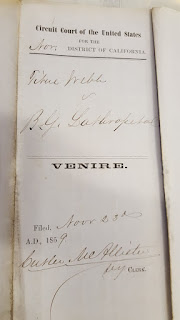 Circuit Court of the United States
FOR THE
Nor. DISTRICT OF CALIFORNIA
Webb
v
B. G. Lathrop et al
VENIRE.
Filed, Nov 23d
A.D., 1859
Cutler McAllister
Dy CLERK.